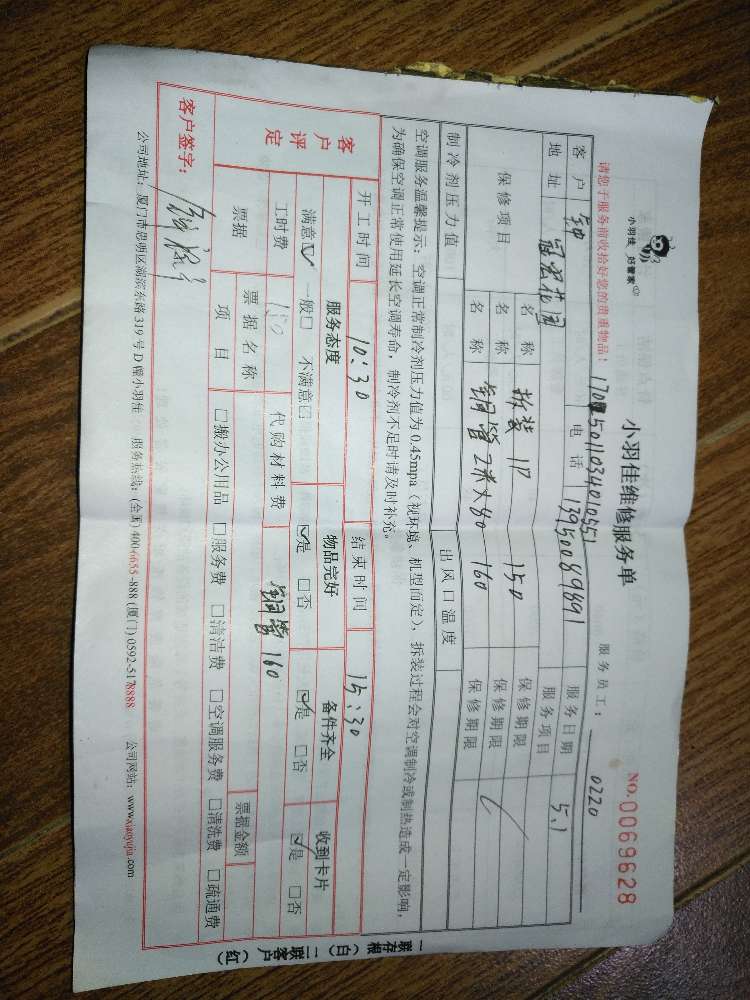 小羽佳 好管家
小羽佳维修服务单
NO.0069628
请您于服务前收拾好您的贵重物品!
服务员工: 0220
客户 钟 电话 13950089891 服务日期 5.1
地址 花园 服务项目
保修项目 名称 拆装1P 150 保修期限
名称 铜管2米×80 160 保修期限
制冷剂压力值 出风口温度
空调服务温馨提示:空调正常制冷剂压力值为0.45mpa(视环境、机型而定),拆装过程会对空调制冷或制热造成一定影响,
为确保空调正常使用延长空调寿命,制冷剂不足时请及时补充。
开工时间 10:30 结束时间 15:30
客户评定 服务态度 物品完好 备件齐全 收到卡片
满意☑ 一般□ 不满意□ ☑是 □否 ☑是 □否 ☑是 □否
工时费 150 代购材料费 铜管160
票据 票据名称 票据金额
项目 □搬办公用品 □服务费 □清洁费 □空调服务费 □清洗费 □疏通费
客户签字:
公司地址:厦门市思明区湖滨东路319号D幢小羽佳 服务热线:(全国)400-6655-888 (厦门)0592-5178888 公司网站:www.xiaoyujia.com
一联存根(白)二联客户(红)